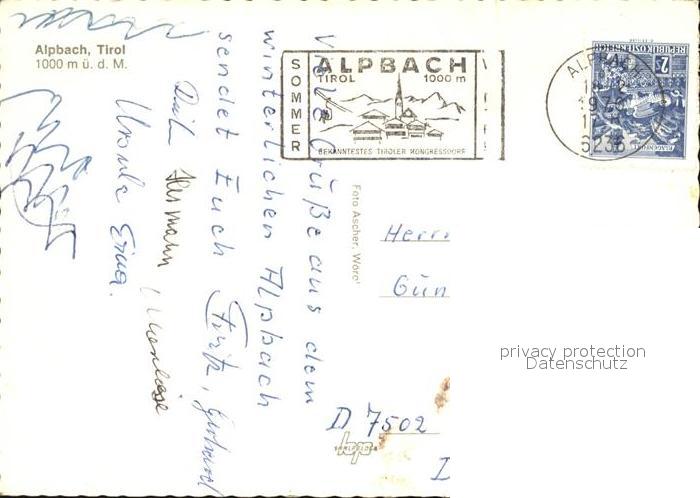 Alpbach, Tirol
1000 m ü. d. M.
SOMMER
ALPBACH
TIROL 1000 m
BEKANNTESTES TIROLER KONGRESSDORF
ALPBACH
6236
REPUBLIK ÖSTERREICH
2
Viele Grüße aus dem
winterlichen Alpbach
sendet Euch Fritz,
Hermann
Ursula
Foto Ascher, Wörgl
Herrn
Gün
D 7502
privacy protection
Datenschutz